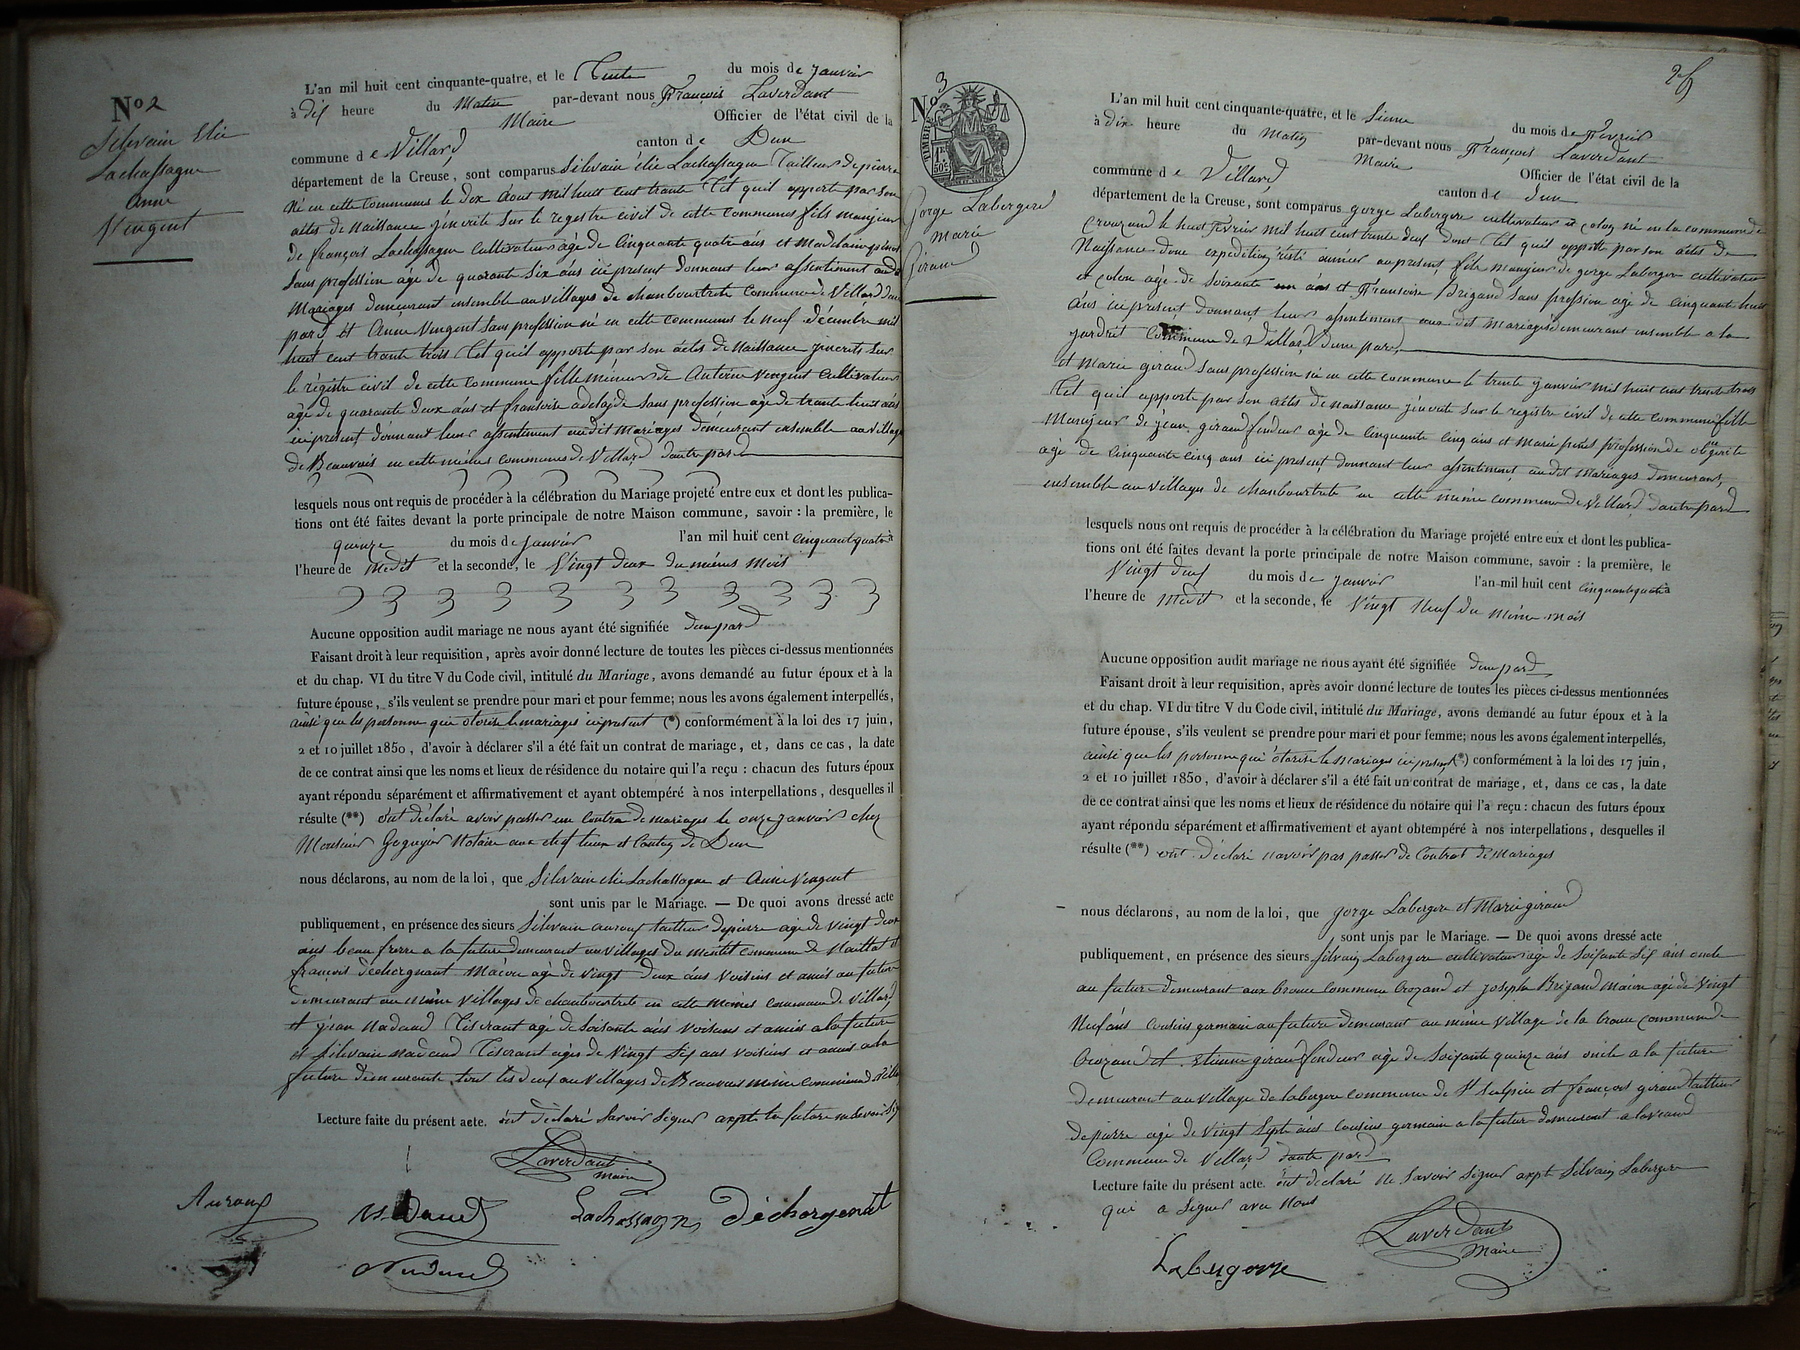 No 2
Silvain Elie
Lachassagne
Anne
Vingent
L'an mil huit cent cinquante-quatre, et le Trente du mois de Janvier
à dix heure du Matin par-devant nous François Laverdant
Maire Officier de l'état civil de la
commune de Villard canton de Dun
département de la Creuse, sont comparus Silvain élie Lachassagne Tailleur de pierre
né en cette commune le dix Aout mil huit cent trante Tel quil apporte par son
attes de Naissance jincrite Sur le registre civil de cette communes fils manjeur
de françois Lachassagne Cultivateur agé de Cinquante quatre ans et
Sans profession agé de quarante Six ans ici present donnant leur assentiment audit
Mariages demeurant ensemble au villages de chanbourtrete Commune de Villard dune
pard Et Anne Vingent Sans profession né en cette communes le neuf décembre mil
huit cent trante trois Tel quil apporte par son actes de Naissance jincrits Sur
le régistre civil de cette commune fille mineur de Antoine Vingent Cultivateur
agé de quarante deux ans et franswise adelaide Sans profession agé de trante huit ans
ici present donnant leur assentiment audit Mariages demeurant ensemble au village
de Beauvais en cette même communes de Villard dautre pard
lesquels nous ont requis de procéder à la célébration du Mariage projeté entre eux et dont les publica-
tions ont été faites devant la porte principale de notre Maison commune, savoir : la première, le
quinze du mois de Janvier l'an mil huit cent cinquant quatre à
l'heure de Medit et la seconde, le Vingt deux du mêmes Mois
Aucune opposition audit mariage ne nous ayant été signifiée dune pard
Faisant droit à leur requisition, après avoir donné lecture de toutes les pièces ci-dessus mentionnées
et du chap. VI du titre V du Code civil, intitulé du Mariage, avons demandé au futur époux et à la
future épouse, s'ils veulent se prendre pour mari et pour femme; nous les avons également interpellés,
ainsi que les personne qui otorise le mariages ici present (*) conformément à la loi des 17 juin,
2 et 10 juillet 1850, d'avoir à déclarer s'il a été fait un contrat de mariage, et, dans ce cas, la date
de ce contrat ainsi que les noms et lieux de résidence du notaire qui l'a reçu : chacun des futurs époux
ayant répondu séparément et affirmativement et ayant obtempéré à nos interpellations, desquelles il
résulte (**) ont déclaré avoir passer un contra de mariages le onze janvier chez
Monsieur Notaire aux chef lieux et Canton de Dun
nous déclarons, au nom de la loi, que Silvain elie Lachassagne et Anne Vingent
sont unis par le Mariage. — De quoi avons dressé acte
publiquement, en présence des sieurs Silvain auroux tailleur de pierre agé de Vingt deux
ans beau frerre a la future demeurant au villages du mentit commune de Naillat et
françois déchergnant Macon agé de Vingt deux ans Voisins et amis au future
demeurant au même villages de chanbourtrete en cette mêmes commune de Villard
et jean Nadaud Tiscrant agé de Soisante ans Voisins et amis a la future
et Silvain Nadaud Tiscrant agés de Vingt Six ans Voisins et amis a la
future demeurante tous les deux au villages de Beauvais même commune de Villard
Lecture faite du présent acte. ont déclaré Savoir Signer
Laverdant
Maire
Auroux
Nadaud
Lachassagne
déchergenat
Nadaud
26
No 3
gorge Labergere
Marie
Giraud
L'an mil huit cent cinquante-quatre, et le Sienne du mois de Fevrier
à dix heure du Matin par-devant nous François Laverdant
Maire Officier de l'état civil de la
commune de Villard canton de Dun
département de la Creuse, sont comparus gorge Labergere cultivateur et colon né en la commune de
Crouzand le huit Fevrier mil huit cent trante deux dont Tel quil apporte par son actes de
Naissance donc expédition resté annexer au present, fils manjeur de gorge Labergere cultivateur
et colon agé de Soisante un ans et Fransoise Brigand Sans profession agé de Cinquante huit
ans ici present donnant leur assentiment au dit mariages demeurant ensemble a la
jardrit Commune de Villard dune pard,
et Marie giraud Sans profession né en cette commune le trente janvier mil huit cent trante trois
Tel quil apporte par Son actes de naissance jincrite Sur le registre civil de cette commune fille
Manjeur de jean giraud fendeur agé de Cinquante cinq ans et Marie
agé de Cinquante Cinq ans ici present, donnant leur assentiment au dit Mariages demeurant
ensemble au villages de chanbourtrete en cette même commune de Villard dautre pard
lesquels nous ont requis de procéder à la célébration du Mariage projeté entre eux et dont les publica-
tions ont été faites devant la porte principale de notre Maison commune, savoir : la première, le
Vingt deux du mois de Janvier l'an mil huit cent cinquante quatre à
l'heure de Medit et la seconde, le Vingt Neuf du même mois
Aucune opposition audit mariage ne nous ayant été signifiée dune pard
Faisant droit à leur requisition, après avoir donné lecture de toutes les pièces ci-dessus mentionnées
et du chap. VI du titre V du Code civil, intitulé du Mariage, avons demandé au futur époux et à la
future épouse, s'ils veulent se prendre pour mari et pour femme; nous les avons également interpellés,
ainsi que les personne qui otorise le Mariages ici present (*) conformément à la loi des 17 juin,
2 et 10 juillet 1850, d'avoir à déclarer s'il a été fait un contrat de mariage, et, dans ce cas, la date
de ce contrat ainsi que les noms et lieux de résidence du notaire qui l'a reçu : chacun des futurs époux
ayant répondu séparément et affirmativement et ayant obtempéré à nos interpellations, desquelles il
résulte (**) ont déclaré navoir pas passer de Contrat de Mariages
nous déclarons, au nom de la loi, que gorge Labergere et Marie giraud
sont unis par le Mariage. — De quoi avons dressé acte
publiquement, en présence des sieurs Silvain Labergere cultivateur agé de Soisante Six ans oncle
au future demeurant aux commune Crozand et joseph Brigand Macon agé de Vingt
Neuf ans Cousins germain au future demeurant au même village de la commune de
Crozand et Etienne giraud fendeur agé de Soisante quinze ans oncle a la future
demeurant au village de Labergere commune de St Sulpice et françois giraud tailleur
de pierre agé de Vingt Sept ans Cousins germain a la future demeurant a
Commune de Villard dautre pard
Lecture faite du présent acte. ont déclaré ne Savoir Signer Silvain Labergere
qui a Signer avec Nous
Laverdant
Maire
Labergere